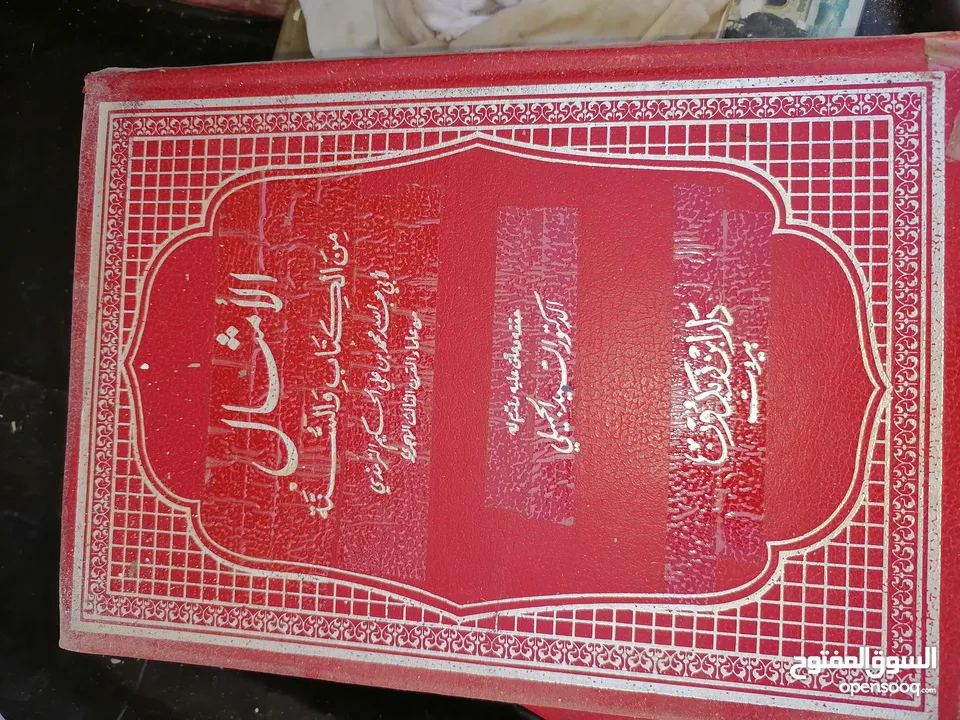 الأمثال
من الكتاب والسنة
لأبي عبد الله محمد بن علي الحكيم الترمذي
من علماء القرن الثالث الهجري
حققه وعلق عليه
الدكتور السيد الجميلي
دار ابن زيدون
بيروت
السوق المفتوح
opensooq.com